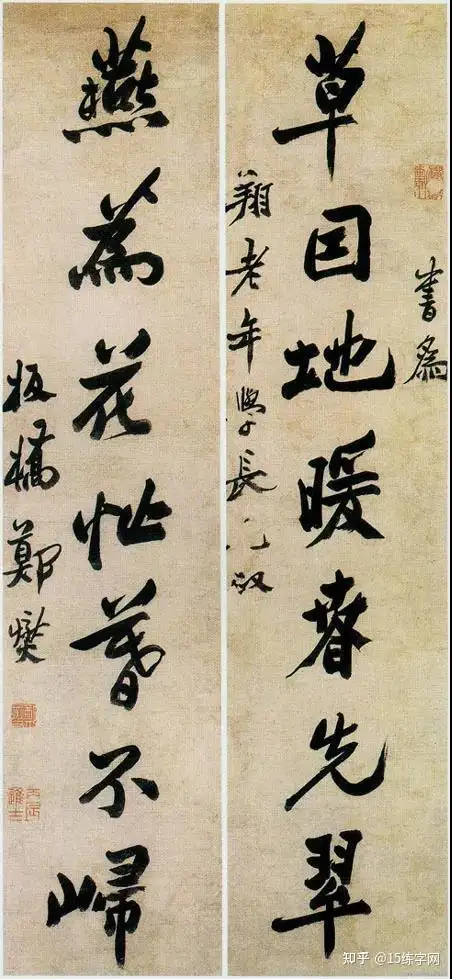 書為
草因地暖春先翠
翔老年學長兄政
燕為花忙暮不歸
板橋鄭燮
知乎 @15练字网